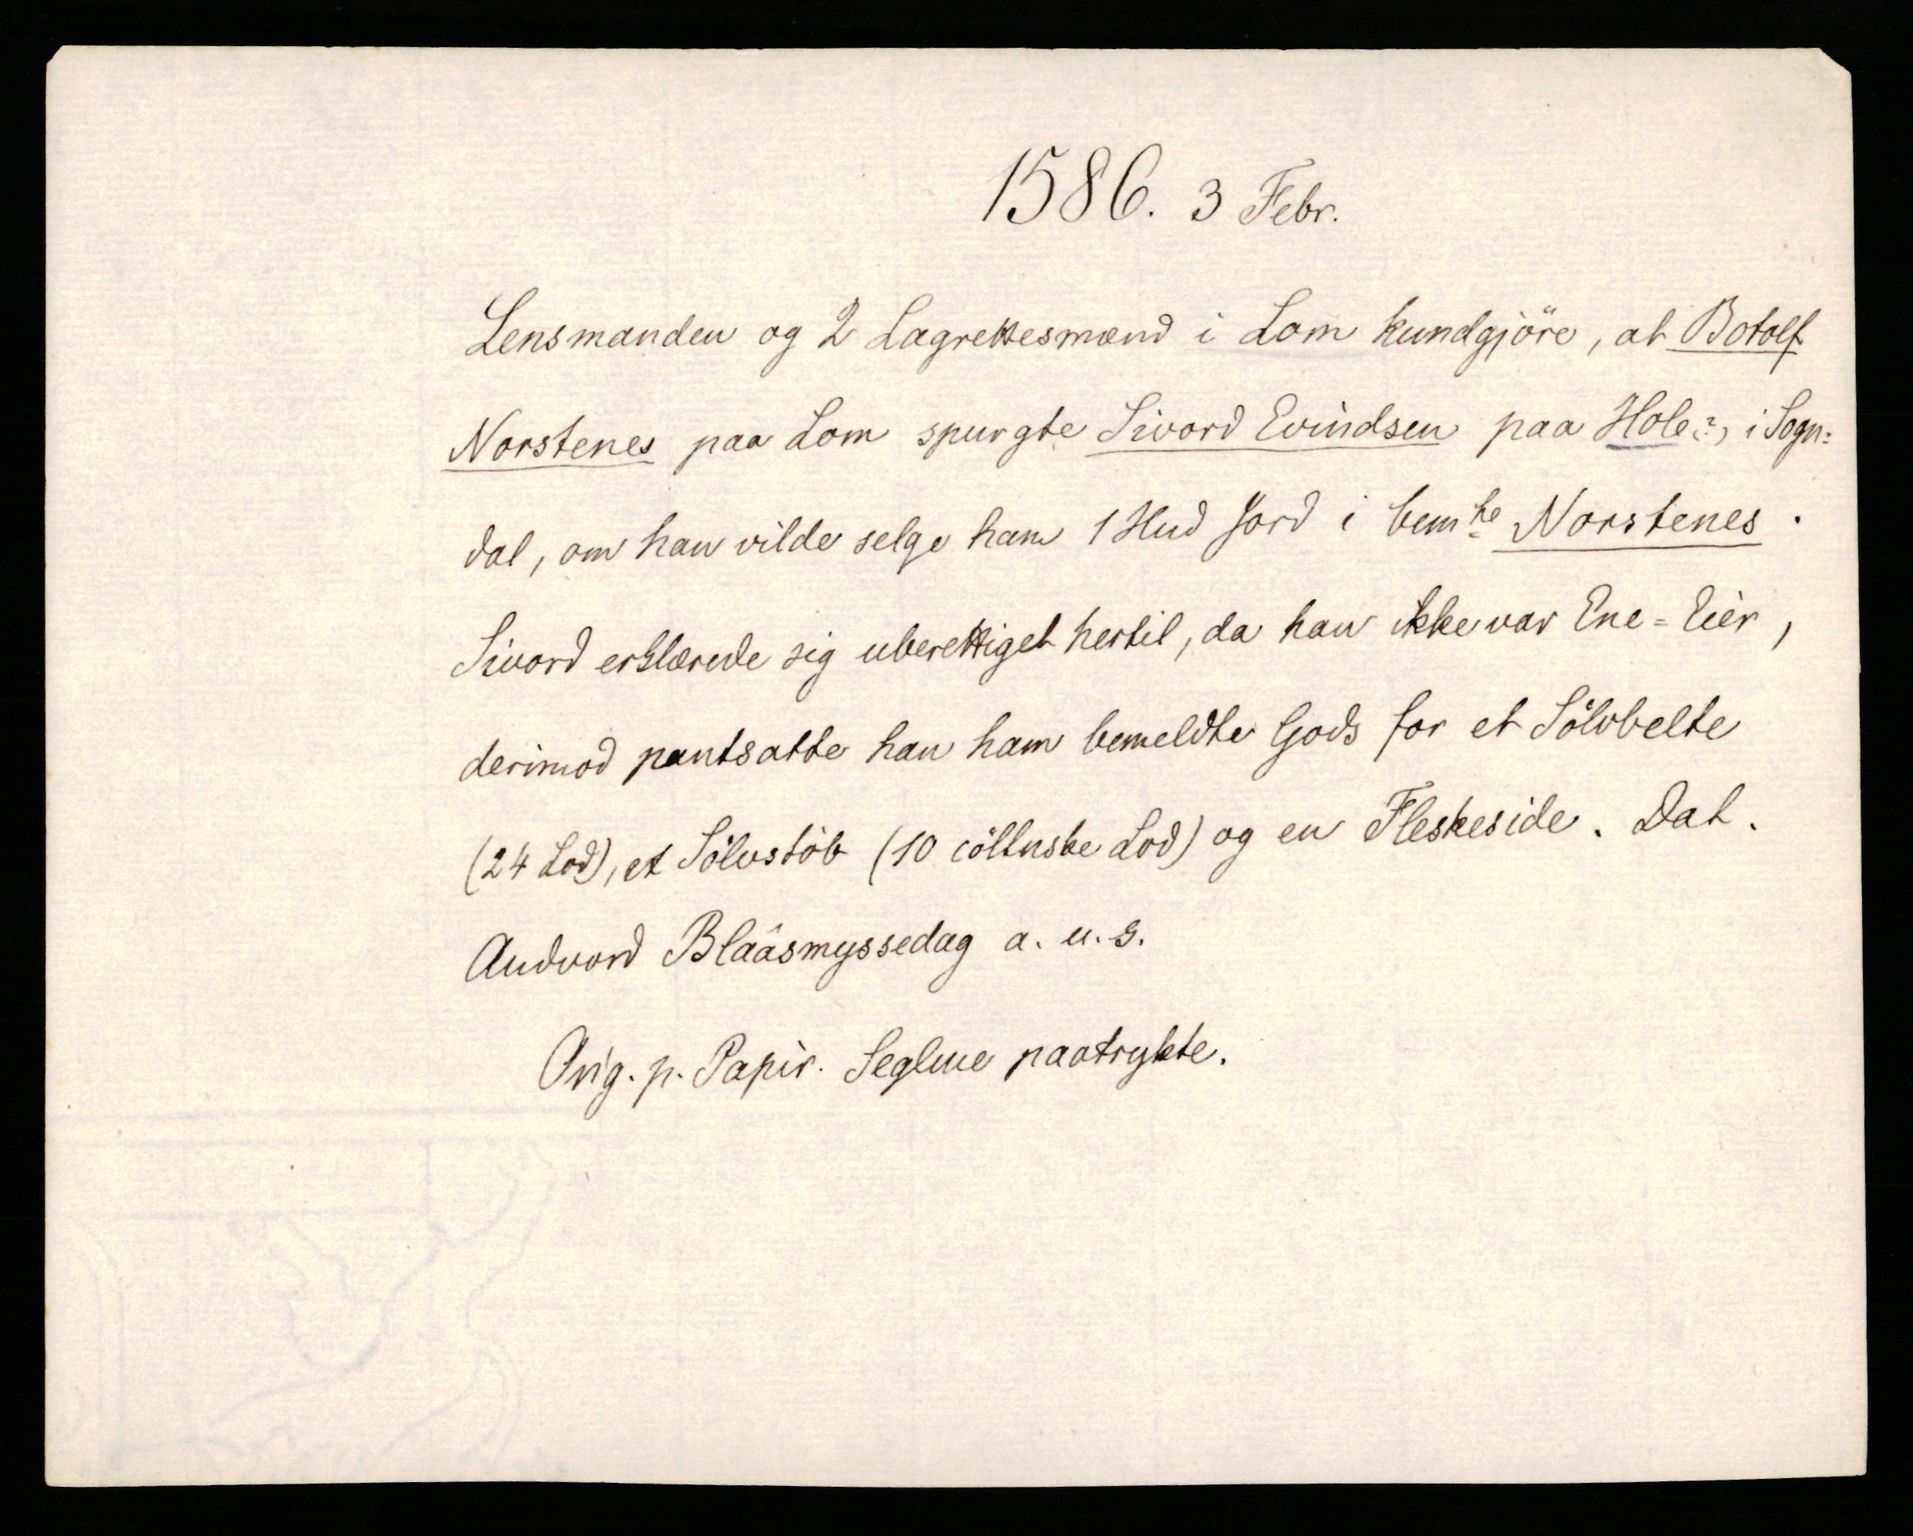 1586. 3 Febr.
Lensmanden og 2 Lagrettesmænd i Lom kundgjöre, at Botolf
Norstenes paa Lom spurgte Sivord Evindsen paa Hole(?), i Sogn=
dal, om han vilde selge ham 1 Hud Jord i bemte Norstenes.
Sivord erklærede sig uberettiget hertil, da han ikke var Ene=Eier,
derimod pantsatte han ham bemeldte Gods for et Sölvbelte
(24 Lod), et Sölvstöb (10 cöllnske Lod) og en Fleskeside. Dat.
Andvord Blaasmyssedag a. u. s.
Orig. p. Papir. Seglene paatrykte.